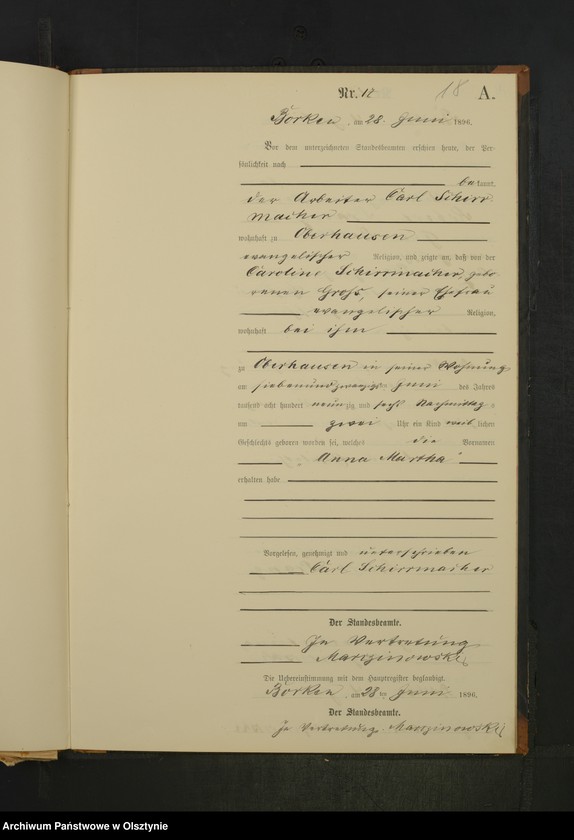 Nr. 12 18 A.
Borken, am 28. Juni 1896.
Vor dem unterzeichneten Standesbeamten erschien heute, der Per-
sönlichkeit nach
bekannt,
der Arbeiter Carl Schirr
macher
wohnhaft zu Oberhausen
evangelischer Religion, und zeigte an, daß von der
Caroline Schirrmacher, gebo
renen Groß, seiner Ehefrau
evangelischer Religion,
wohnhaft bei ihm
zu Oberhausen in seiner Wohnung
am siebenundzwanzigsten Juni des Jahres
tausend acht hundert neunzig und sechs Nachmittags
um zwei Uhr ein Kind weiblichen
Geschlechts geboren worden sei, welches die Vornamen
Anna Martha
erhalten habe
Vorgelesen, genehmigt und unterschrieben
Carl Schirrmacher
Der Standesbeamte.
In Vertretung
Marszinowski
Die Uebereinstimmung mit dem Hauptregister beglaubigt.
Borken, am 28ten Juni 1896.
Der Standesbeamte.
In Vertretung. Marszinowski
Archiwum Państwowe w Olsztynie